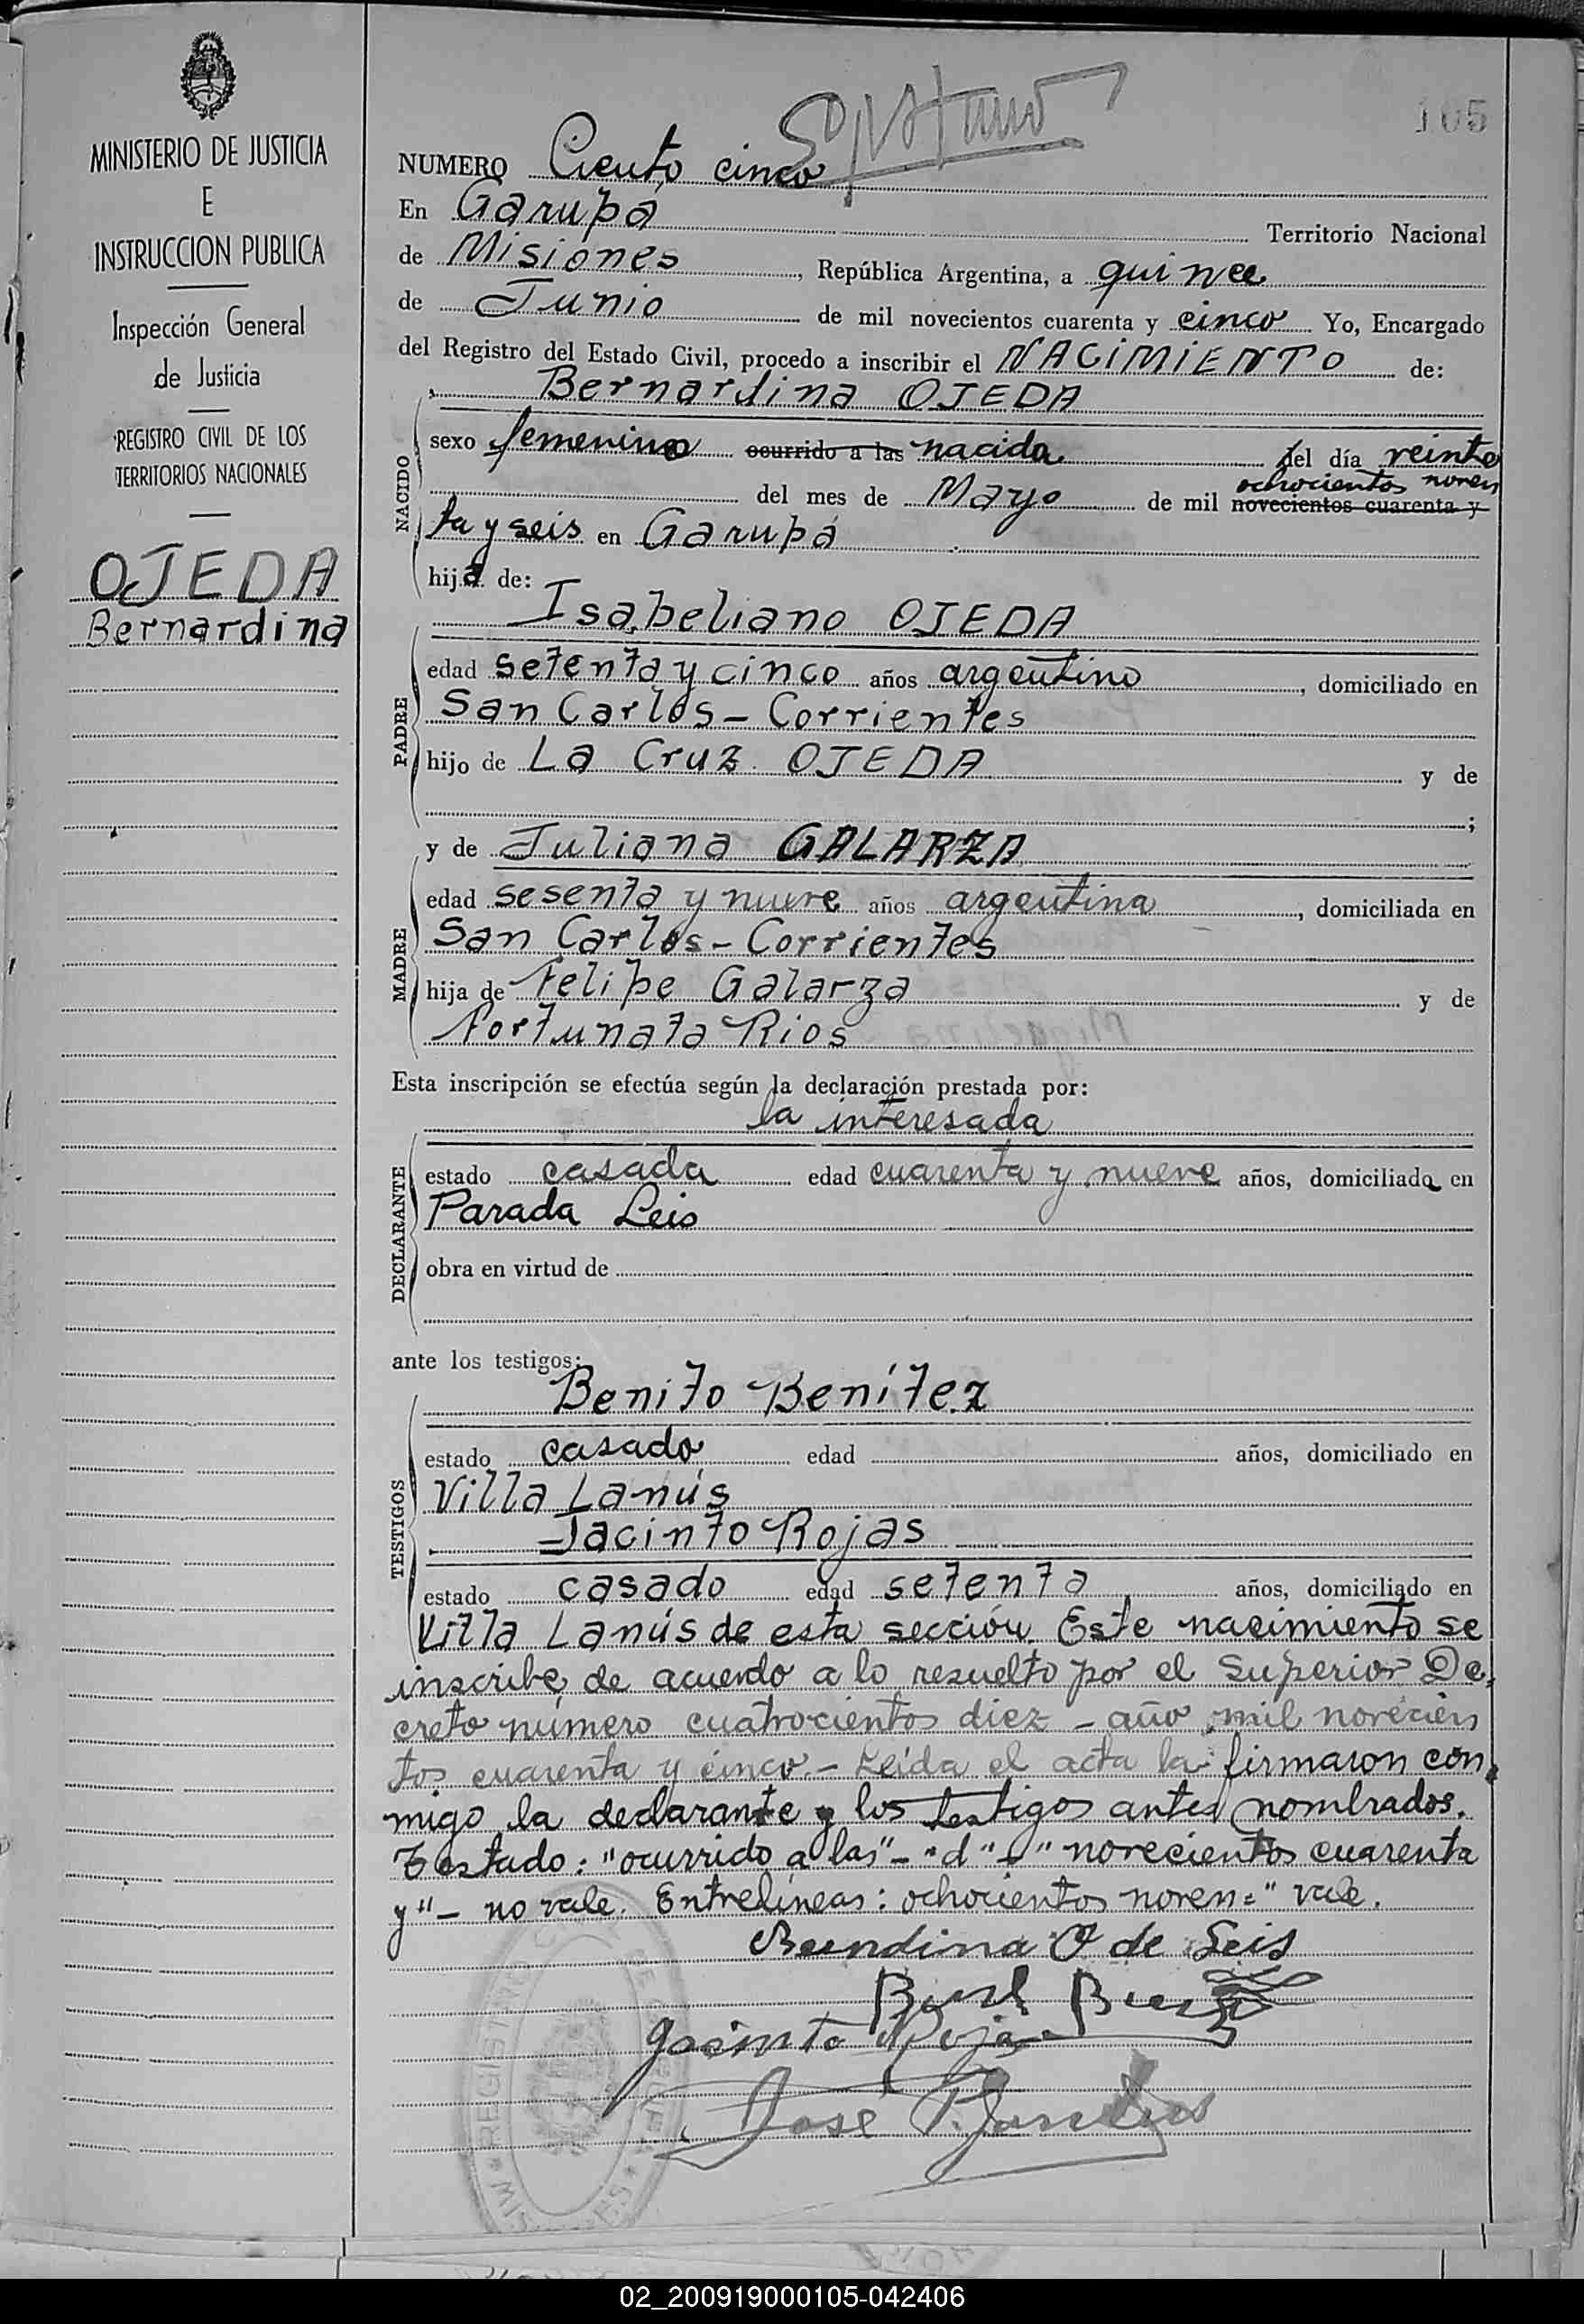 MINISTERIO DE JUSTICIA
E
INSTRUCCION PUBLICA
Inspección General
de Justicia
REGISTRO CIVIL DE LOS
TERRITORIOS NACIONALES
OJEDA
Bernardina
105
NUMERO Ciento cinco
En Garupá Territorio Nacional
de Misiones, República Argentina, a quince
de Junio de mil novecientos cuarenta y cinco Yo, Encargado
del Registro del Estado Civil, procedo a inscribir el NACIMIENTO de:
Bernardina OJEDA
NACIDO
sexo femenino ocurrido a las nacida el día veinte
ochocientos noven
del mes de Mayo de mil novecientos cuarenta y
ta y seis en Garupá
hija de:
Isabeliano OJEDA
PADRE
edad setenta y cinco años argentino, domiciliado en
San Carlos - Corrientes
hijo de La Cruz OJEDA y de
;
y de Juliana GALARZA
MADRE
edad sesenta y nueve años argentina, domiciliada en
San Carlos - Corrientes
hija de Felipe Galarza y de
Fortunata Rios
Esta inscripción se efectúa según la declaración prestada por:
la interesada
DECLARANTE
estado casada edad cuarenta y nueve años, domiciliada en
Parada Leis
obra en virtud de
ante los testigos:
Benito Benítez
TESTIGOS
estado casado edad años, domiciliado en
Villa Lanús
Jacinto Rojas
estado casado edad setenta años, domiciliado en
Villa Lanús de esta sección. Este nacimiento se
inscribe de acuerdo a lo resuelto por el Superior De-
creto número cuatrocientos diez - año mil novecien
tos cuarenta y cinco.- Leída el acta la firmaron con-
migo la declarante y los testigos antes nombrados.
Testado: "ocurrido a las" - "d" - "novecientos cuarenta
y" - no vale. Entrelíneas: ochocientos noven=" vale.
Berndina O de Leis
Jacinto Roja
José
REGISTRO
02_200919000105-042406